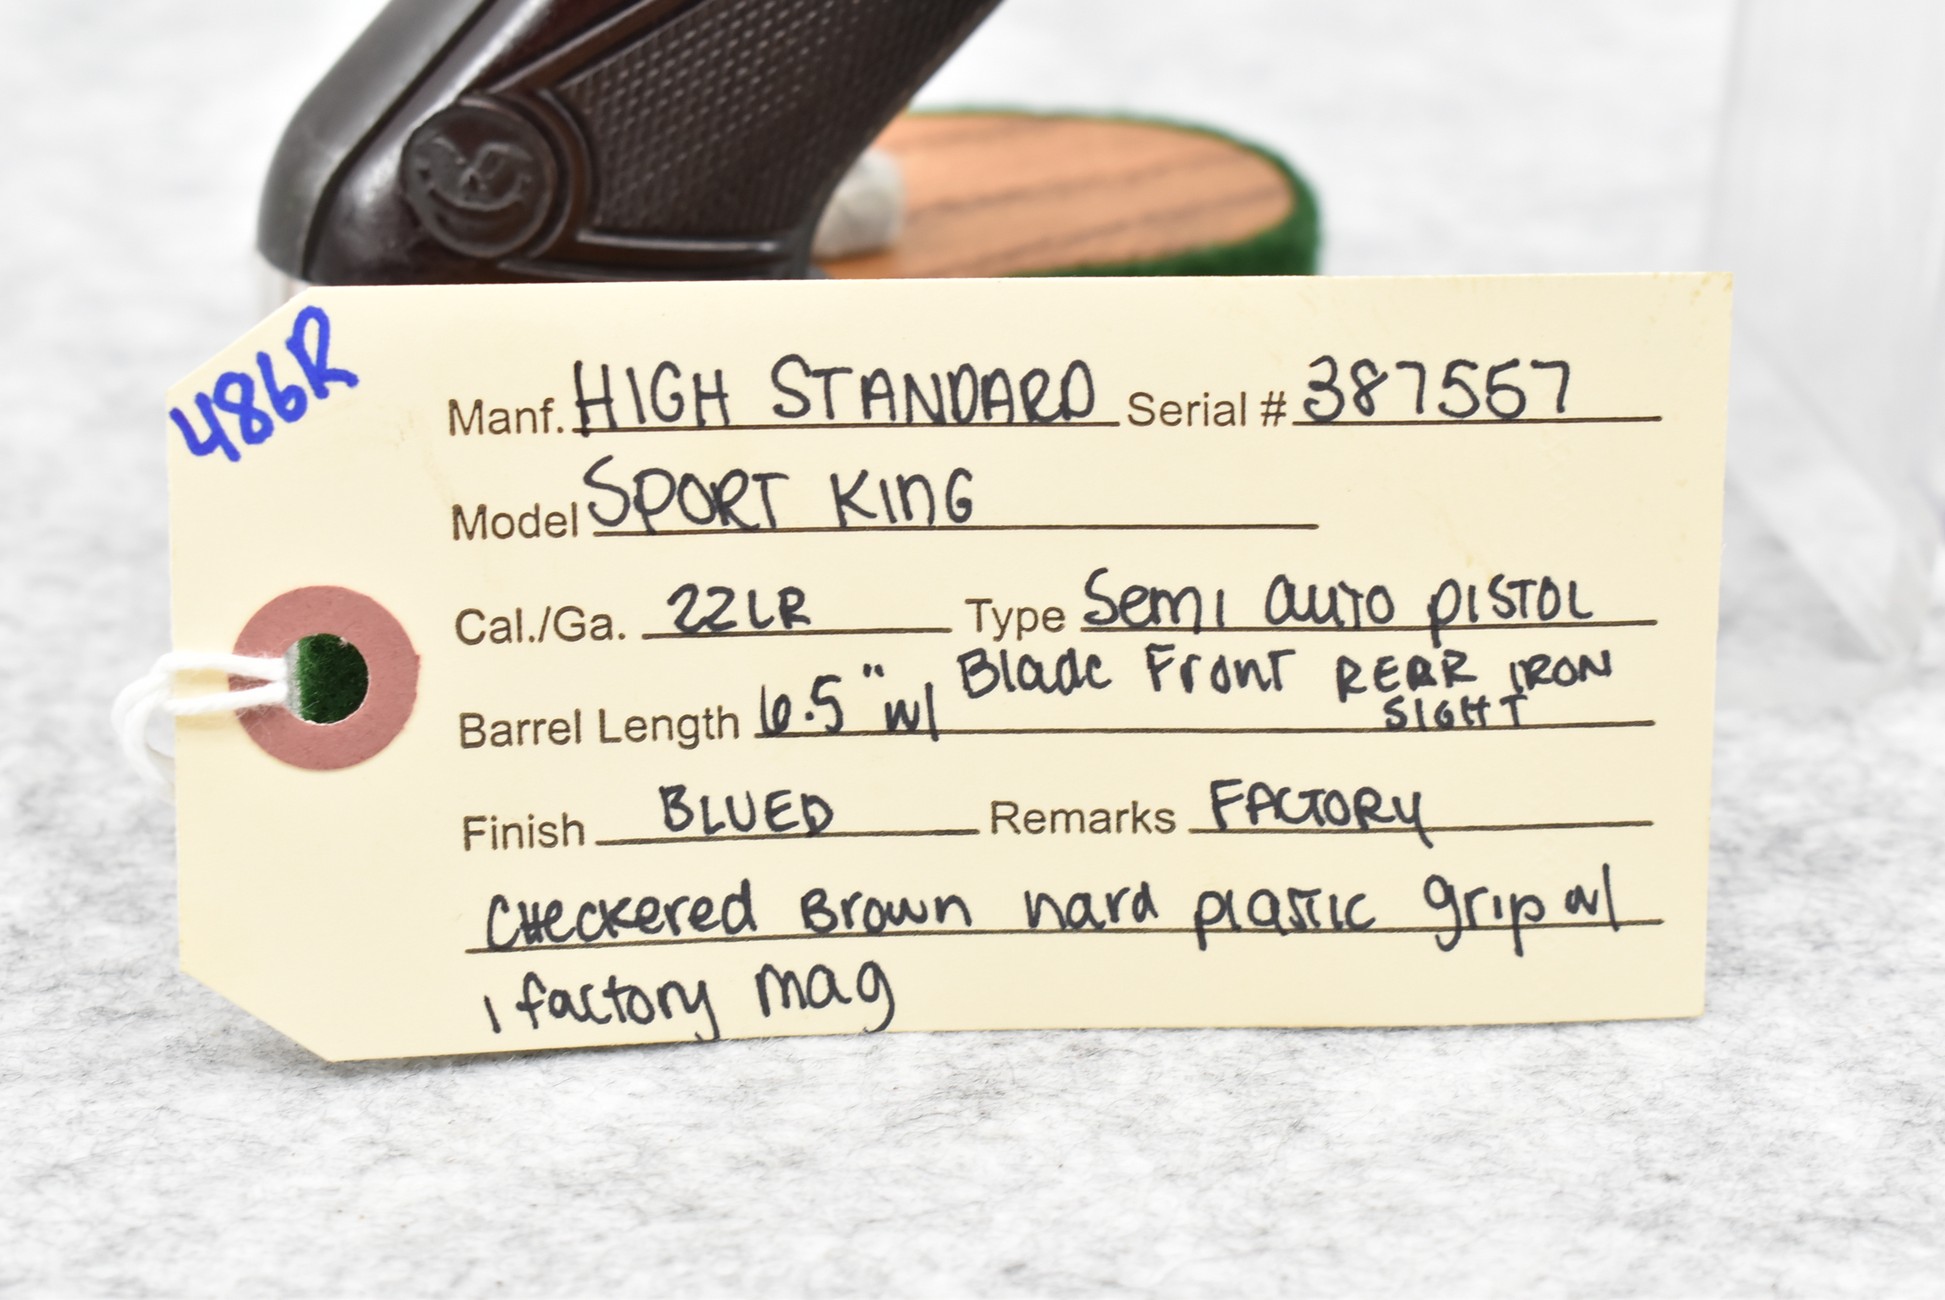 486R
Manf. HIGH STANDARD Serial # 387557
Model SPORT KING
Cal./Ga. 22LR Type Semi auto PISTOL
Barrel Length 6.5" w/ Blade Front REAR IRON SIGHT
Finish BLUED Remarks FACTORY
CHeckered Brown hard plastic grip w/
1 factory mag